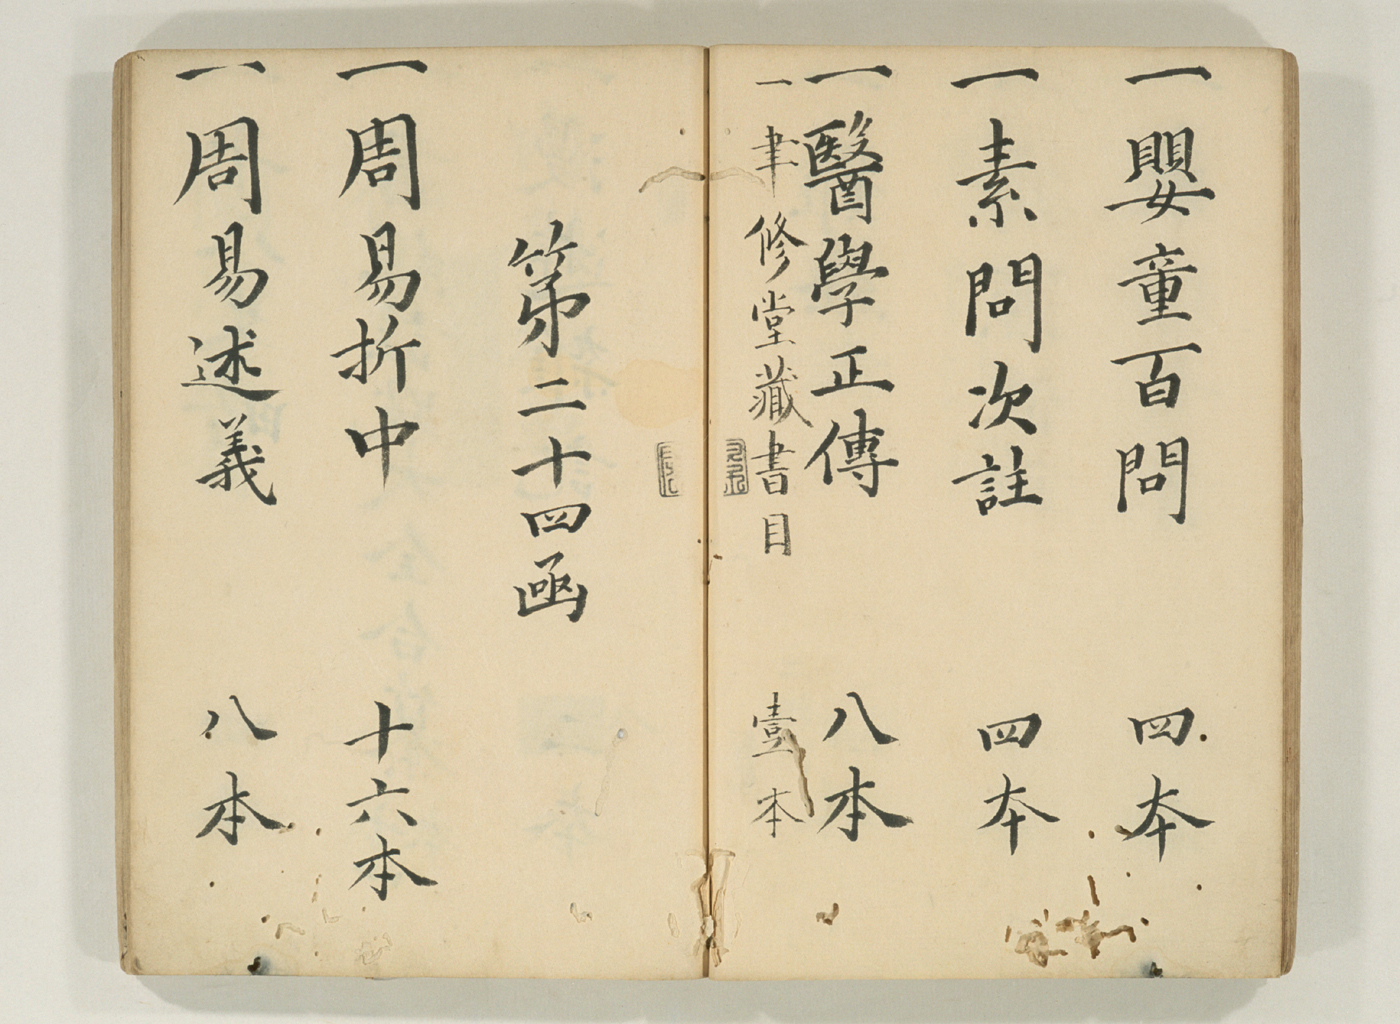 一嬰童百問 四本
一素問次註 四本
一醫學正傳 八本
一聿修堂藏書目 壹本
第二十四函
一周易折中 十六本
一周易述義 八本